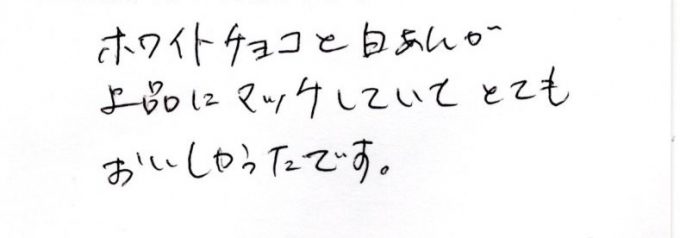 ホワイトチョコと白あんが
上品にマッチしていてとても
おいしかったです。